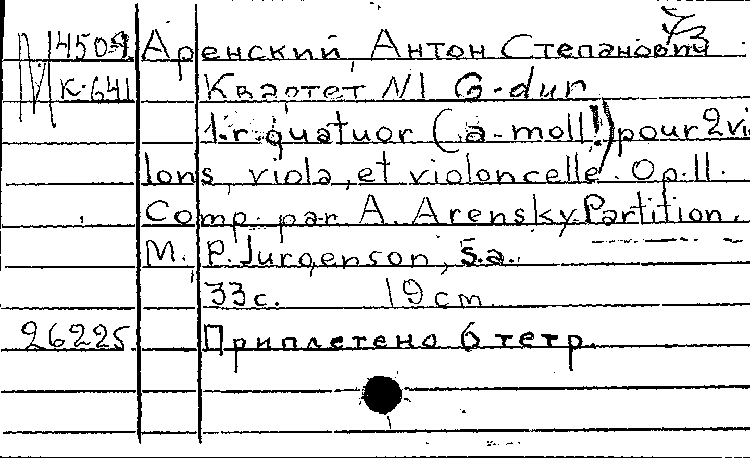 М 4509 Аренский, Антон Степанович
К-641 Квартет N1 G-dur
1-r quatuor (a-moll!) pour 2 vi
lons, viola, et violoncelle. Op. 11.
Comp. par A. Arensky Partition.
М., P. Jurgenson, s.a.
33 с. 19 cm
26225 Приплетено 6 тетр.